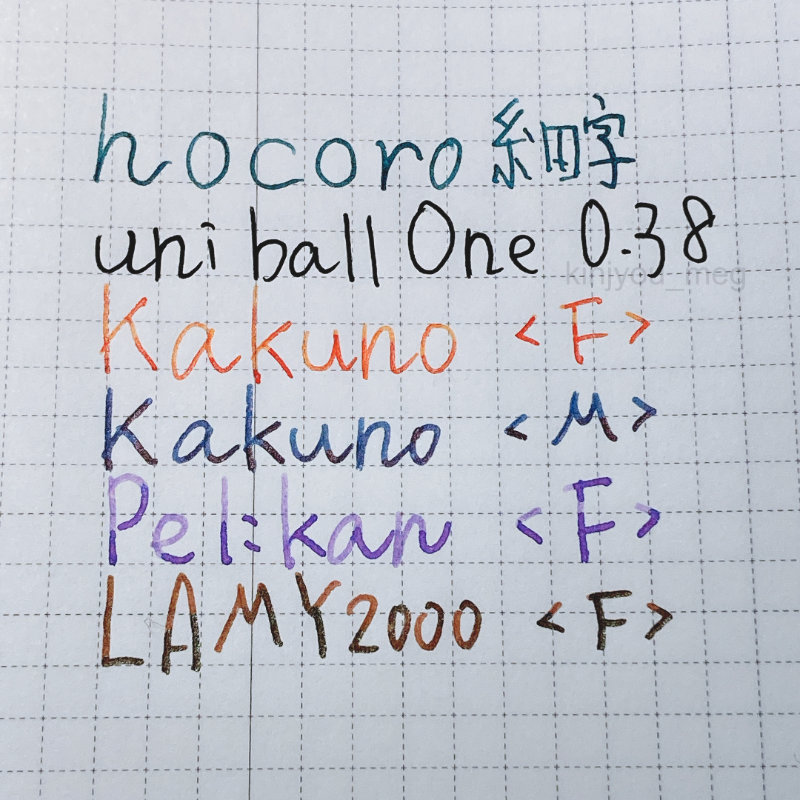 hocoro 細字
uni ball One 0.38
kinjyou_meg
Kakuno <F>
Kakuno <M>
Pelikan <F>
LAMY2000 <F>